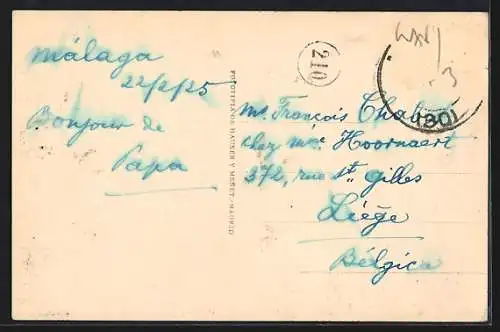 málaga
22/2/25
Bonjour de
Papa
FOTOTIPIA DE HAUSER Y MENET.-MADRID
210
mr François
chez mme Hoornaert
372, rue St gilles
Liége
Bélgica